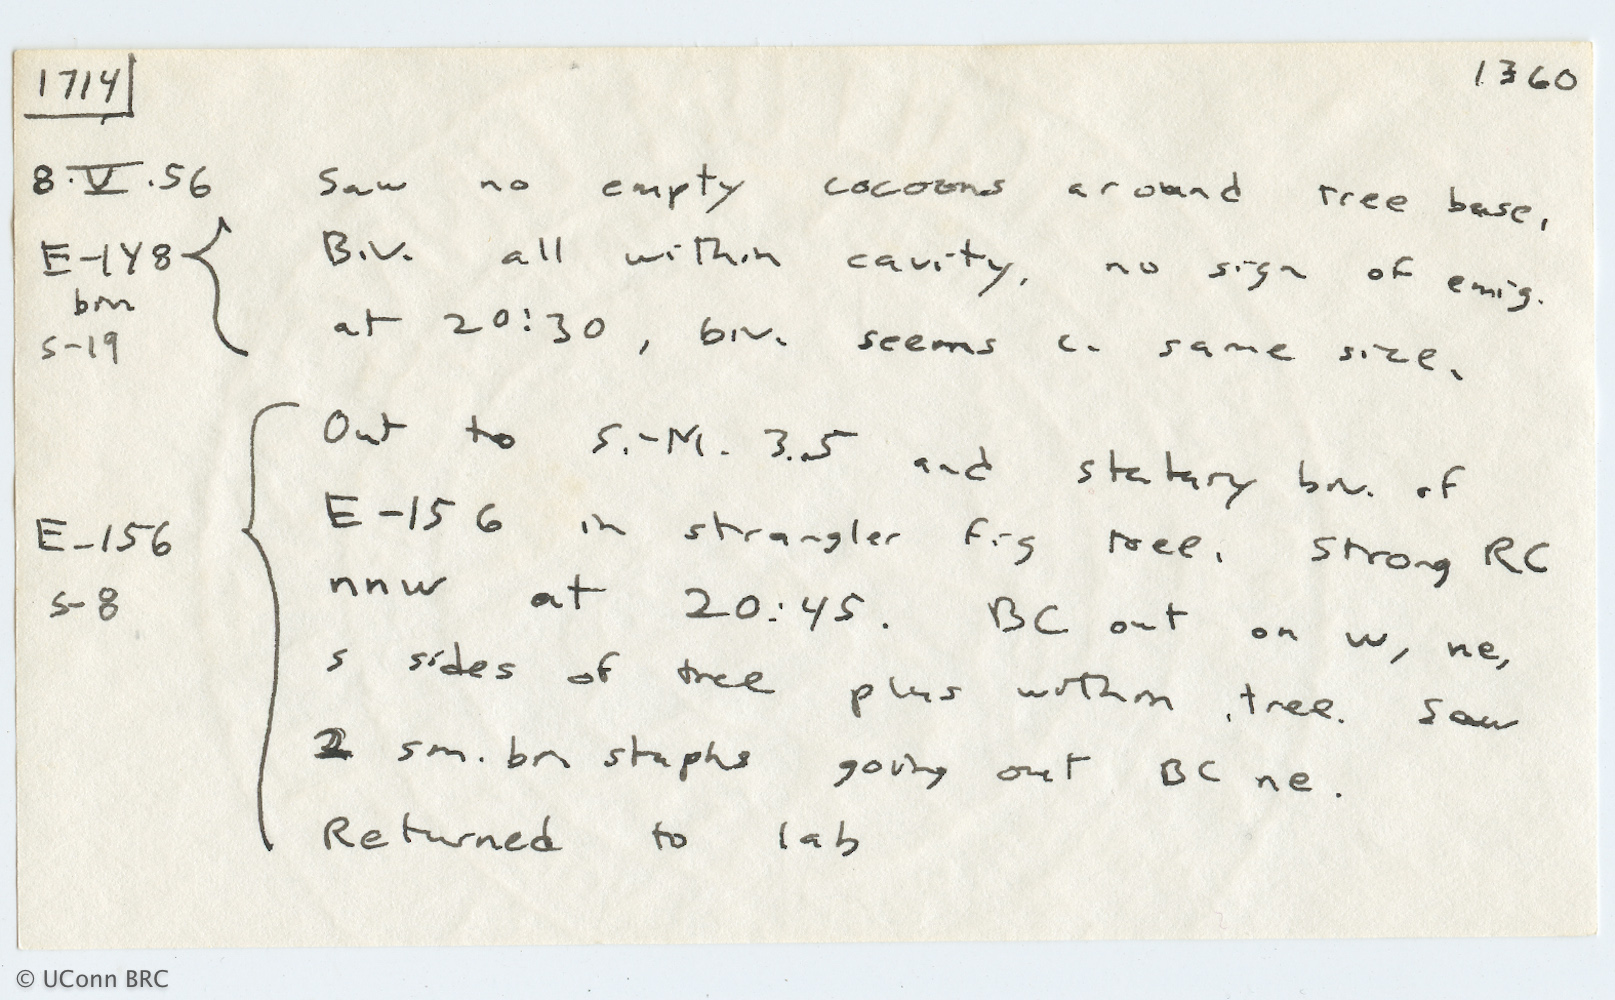 1714
1360
8.V.56 Saw no empty cocoons around tree base,
E-148 Biv. all within cavity, no sign of emig.
bm
s-19 at 20:30, biv. seems c. same size.
Out to S.-M. 3.5 and statary biv. of
E-156 E-156 in strangler fig tree. Strong RC
s-8 nnw at 20:45. BC out on w, ne,
s sides of tree plus within tree. Saw
2 sm. brn staphs going out BC ne.
Returned to lab
© UConn BRC